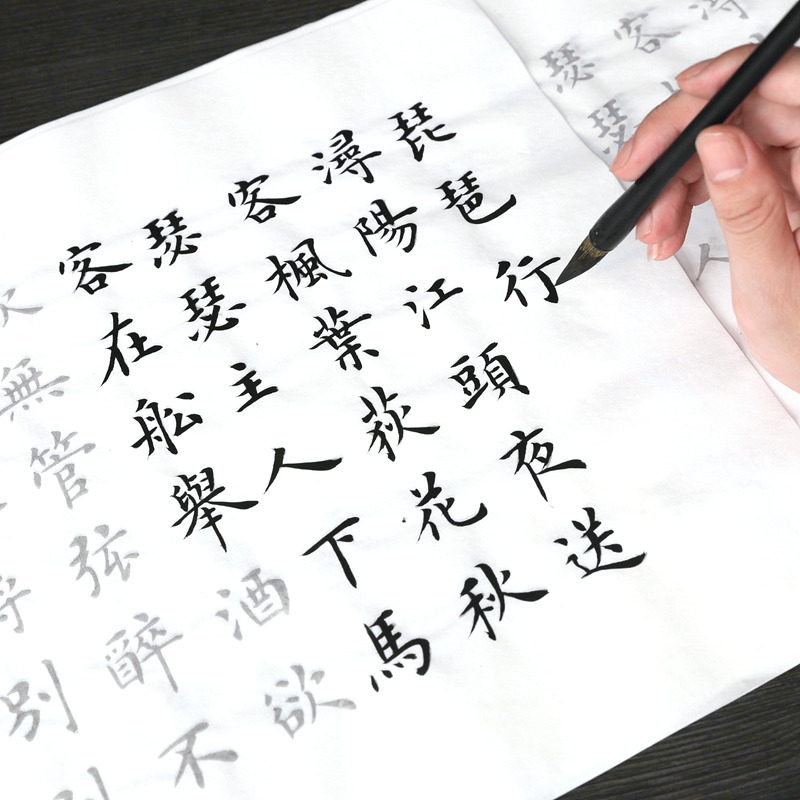 琵琶行
潯陽江頭夜送
客楓葉荻花秋
瑟瑟主人下馬
客在舩舉酒欲
無管弦醉不
別
客
瑟瑟
人